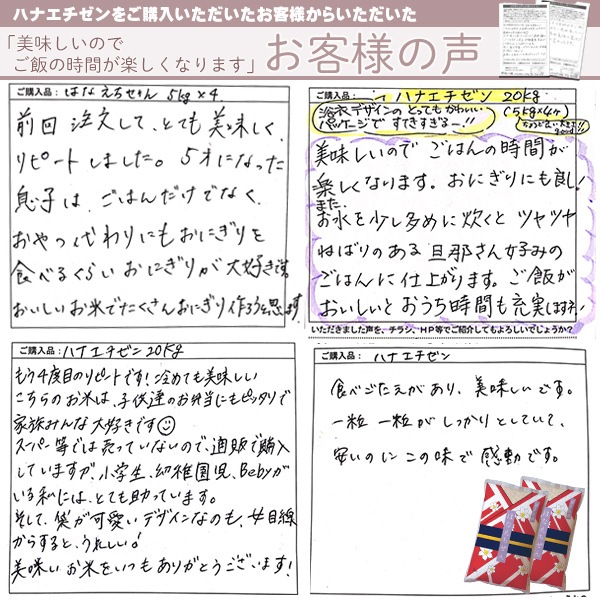 ハナエチゼンをご購入いただいたお客様からいただいた
「美味しいので
ご飯の時間が楽しくなります」
お客様の声
ご購入品: はなえちぜん 5kg×4
前回 注文して、とても美味しく
リピートしました。5才になった
息子は、ごはんだけでなく、
おやつ代わりにもおにぎりを
食べるくらい おにぎりが大好きです
おいしいお米でたくさんおにぎり作ろうと思います
ご購入品: ハナエチゼン 20kg
(5kg×4ヶ)
浴衣デザインの とってもかわいい
パッケージで すてきすぎるー!!
美味しいので ごはんの時間が
楽しくなります。おにぎりにも良し!
また、
お水を少し多めに炊くと ツヤツヤ
ねばりのある 旦那さん好みの
ごはんに仕上がります。ご飯が
おいしいと おうち時間も充実しますネ!
いただきました声を、チラシ、HP等でご紹介してもよろしいでしょうか?
ご購入品: ハナエチゼン20kg
もう4度目のリピートです!冷めても美味しい
こちらのお米は、子供達のお弁当にもピッタリで
家族みんな大好きです
スーパー等では売っていないので、通販で購入
していますが、小学生、幼稚園児、Bebyが
いる私には、とても助っています。
そして、袋が可愛いデザインなのも、女目線
からすると、うれしい!
美味しいお米をいつもありがとうございます!
ご購入品: ハナエチゼン
食べごたえがあり、美味しいです。
一粒一粒がしっかりとしていて、
安いのにこの味で感動です。